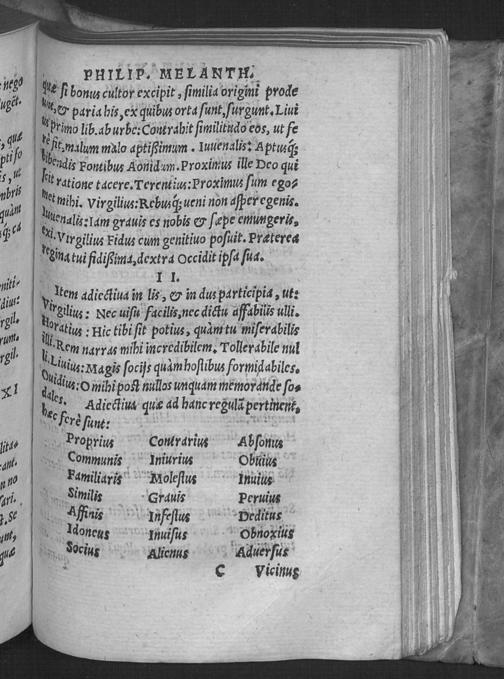 PHILIP. MELANTH.
quæ si bonus cultor excipit, similia origini prode
unt, & paria his, ex quibus orta sunt, surgunt. Liui
us primo lib. ab urbe: Contrahit similitudo eos, ut fe
rè fit, malum malo aptißimum. Iuuenalis: Aptusq́;
bibendis Fontibus Aonidum. Proximus ille Deo qui
scit ratione tacere. Terentius: Proximus sum ego-
met mihi. Virgilius: Rebusq́; ueni non asper egenis.
Iuuenalis: Iam grauis es nobis & sæpe emungeris,
exi. Virgilius Fidus cum genitiuo posuit. Præterea
regina tui fidißima, dextra Occidit ipsa sua.
II.
Item adiectiua in lis, & in dus participia, ut:
Virgilius: Nec uisu facilis, nec dictu affabilis ulli.
Horatius: Hic tibi sit potius, quàm tu miserabilis
illi. Rem narras mihi incredibilem. Tollerabile nul
li. Liuius: Magis socijs quàm hostibus formidabiles.
Ouidius: O mihi post nullos unquam memorande so-
dales. Adiectiua quæ ad hanc regulã pertinent,
hæc ferè sunt:
Proprius Contrarius Absonus
Communis Iniurius Obuius
Familiaris Molestus Inuius
Similis Grauis Peruius
Affinis Infestus Deditus
Idoneus Inuisus Obnoxius
Socius Alienus Aduersus
C Vicinus